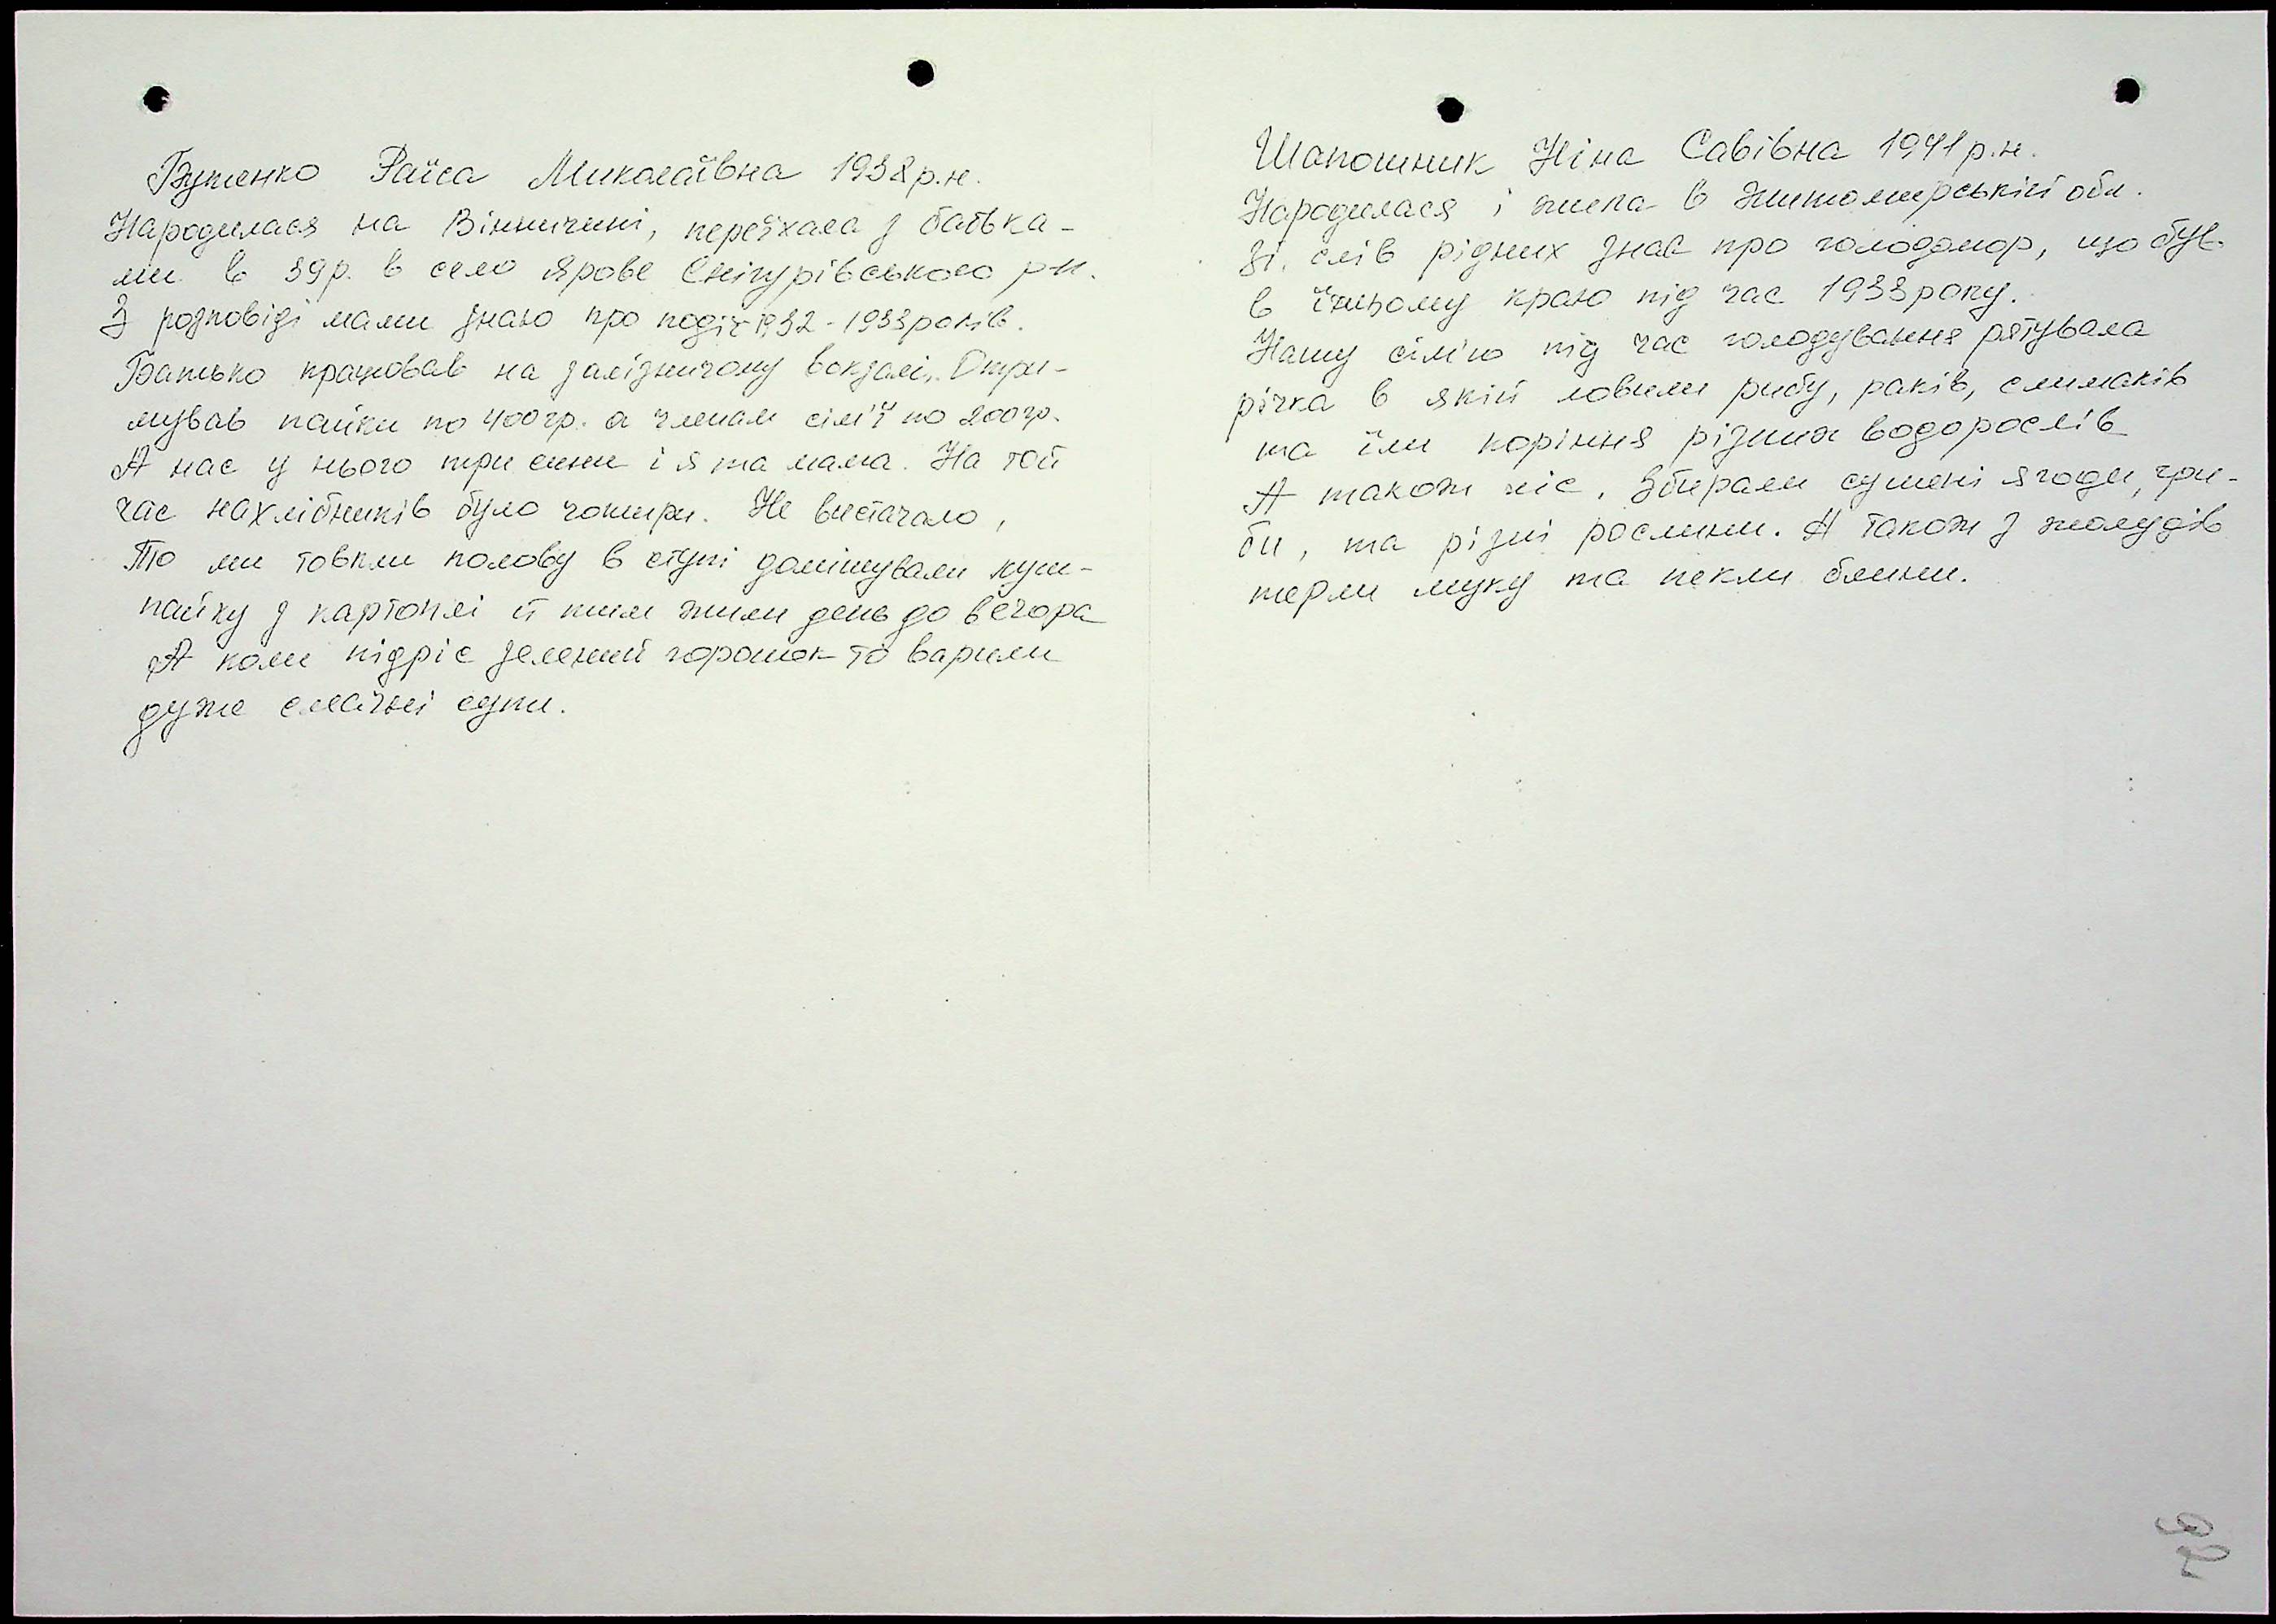 Бутенко Раїса Миколаївна 1938 р.н.
Народилася на Вінничині, переїхала з батька-
ми в 39р. в село Ярове Снігурівського р-н.
З розповіді мами знаю про події 1932-1933 років.
Батько працював на залізничому вокзалі. Отри-
мував пайки по 400 гр. а членам сім'ї по 200 гр.
А нас у нього три сини і я та мама. На той
час нахлібників було чотири. Не вистачало,
То ми товкли полову в ступі домішували луш-
пайку з картоплі й тим жили день до вечора
А коли підріс зелений горошок то варили
дуже смачні супи.
Шапошник Ніна Савівна 1941 р.н.
Народилася і жила в Житомирській обл.
Зі слів рідних знає про голодомор, що був
в їхньому краю під час 1933 року.
Нашу сім'ю під час голодування рятувала
річка в якій ловили рибу, раків, слимаків
та їли коріння різних водорослів
А також ліс. Збирали сушені ягоди, гри-
би, та різні рослини. А також з жолудів
терли муку та пекли блини.
92